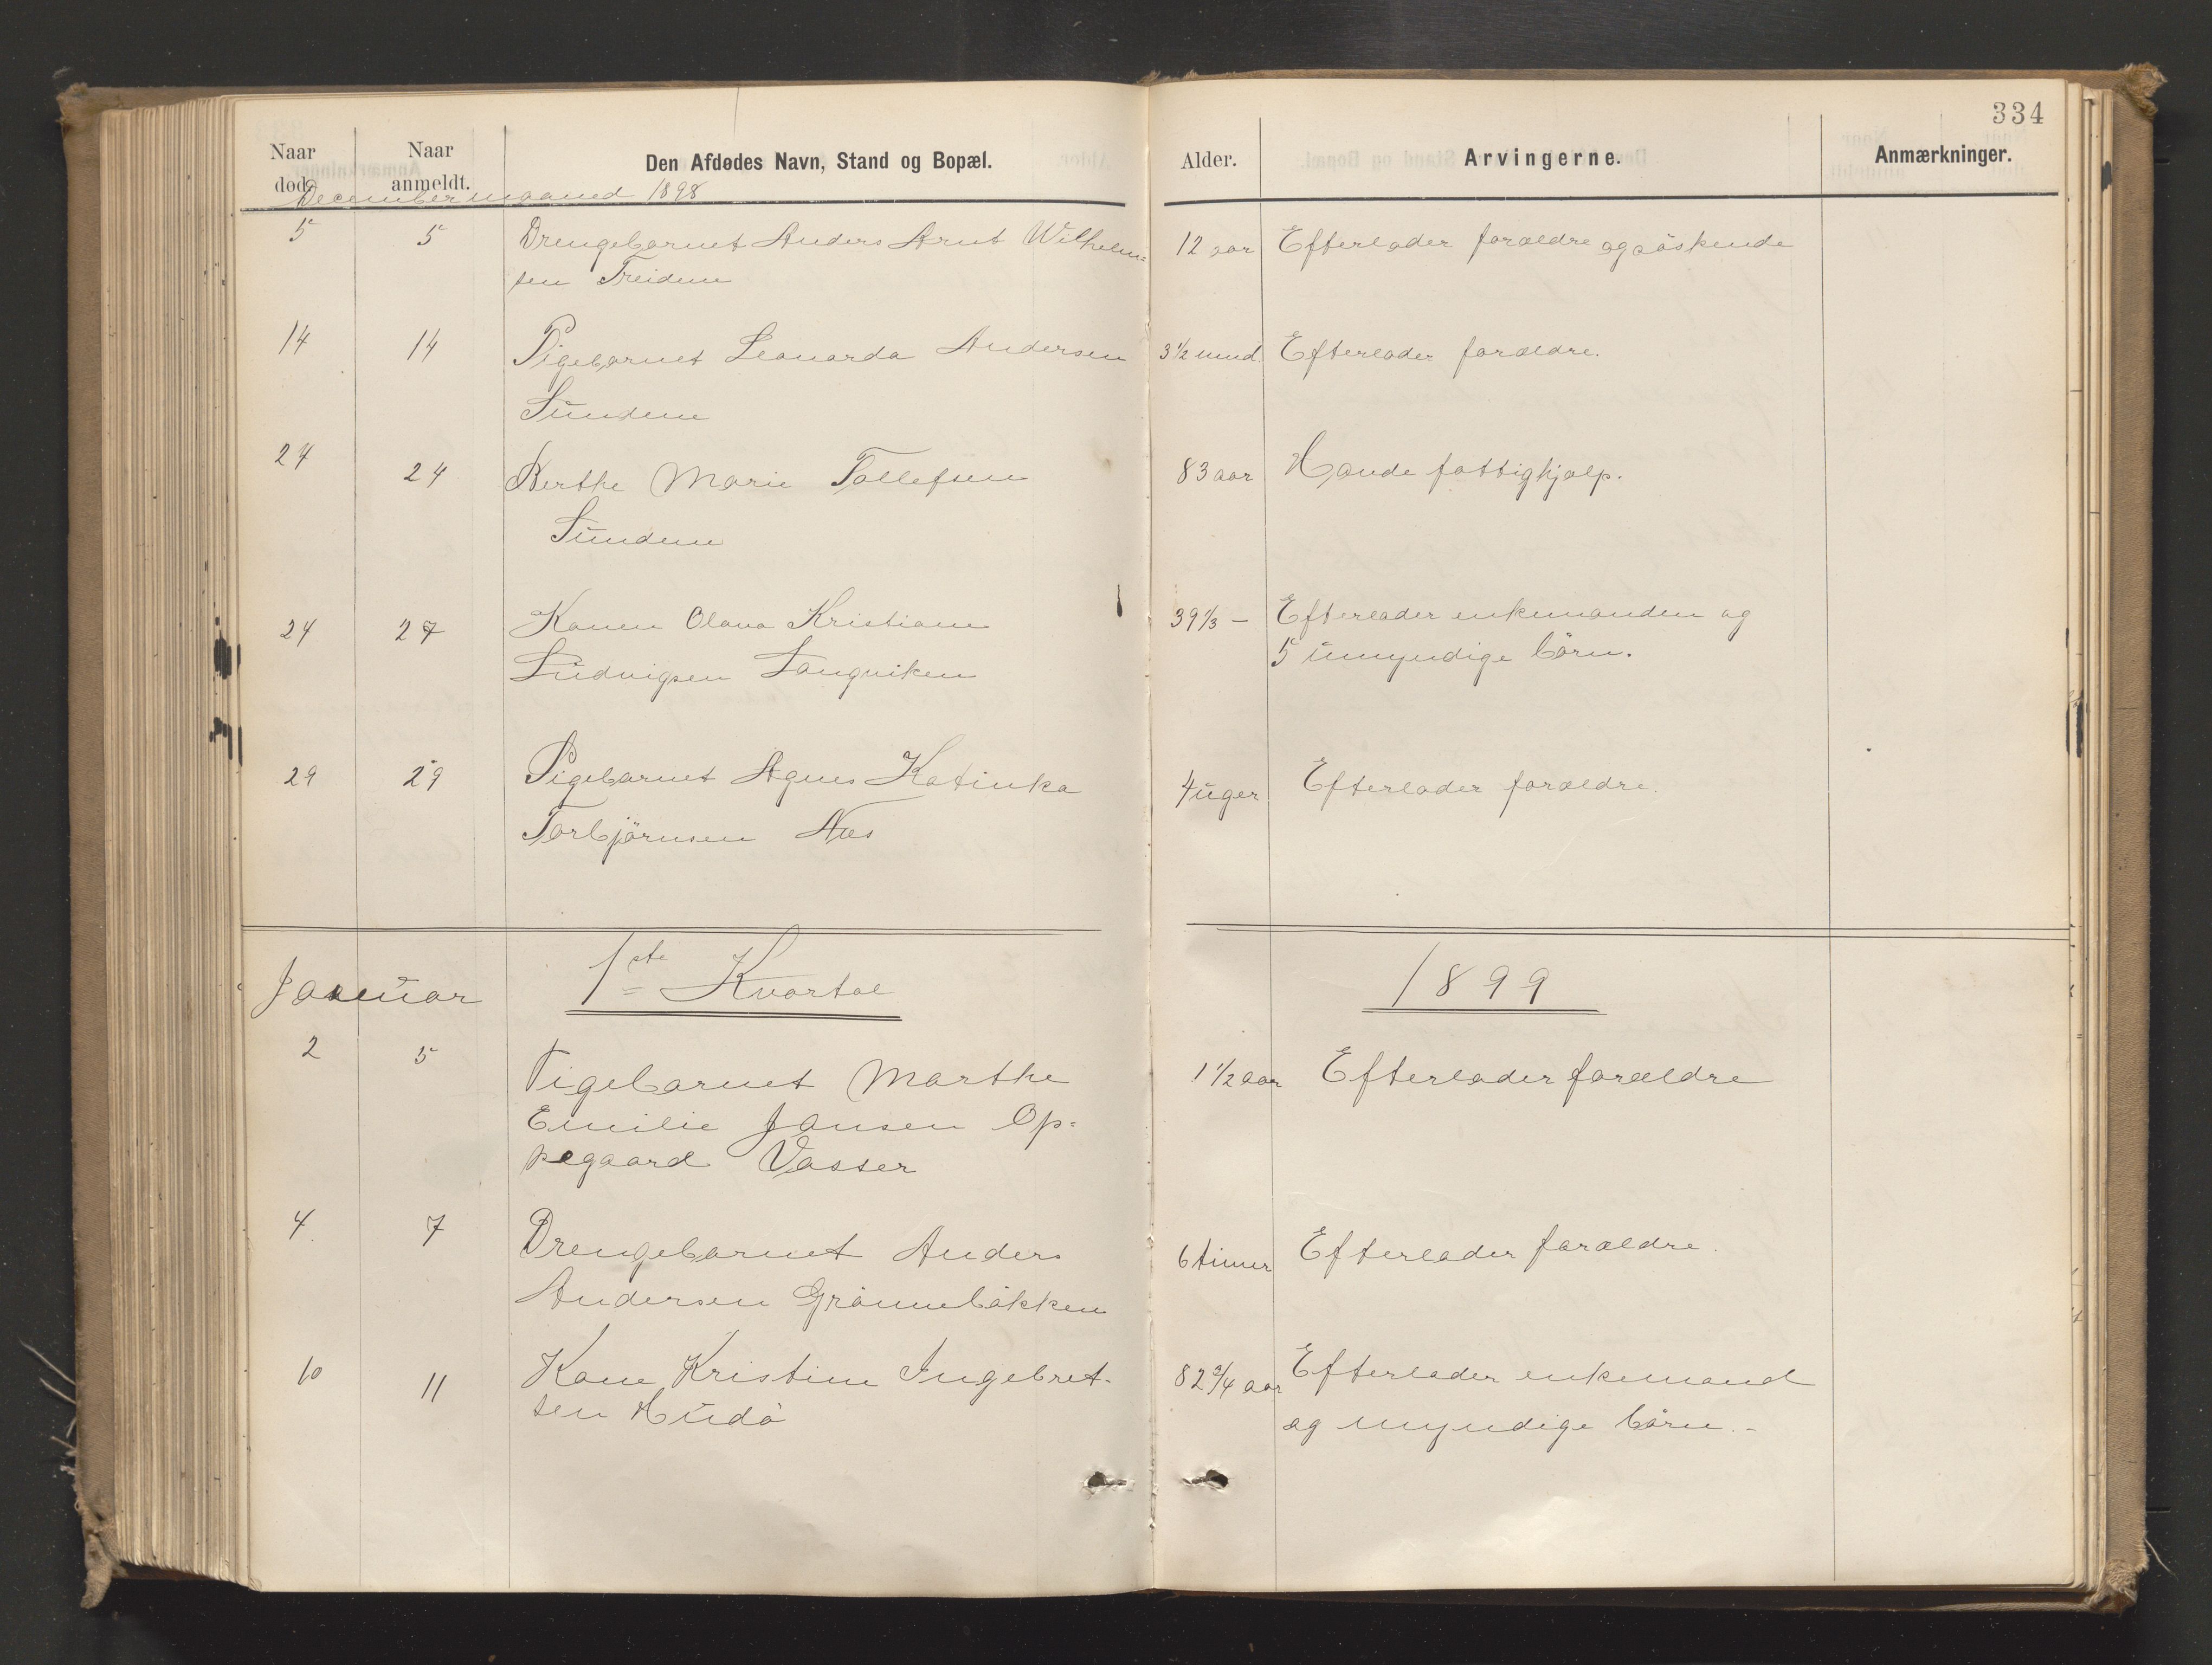 334
Naar død. Naar anmeldt. Den Afdødes Navn, Stand og Bopæl. Alder. Arvingerne. Anmærkninger.
December maaned 1898
5 5 Drengebarnet Anders Arnt Wilhelm= 12 aar Efterlader forældre og söskende
sen Treidene
14 14 Pigebarnet Leonarda Andersen 3 1/2 mnd Efterlader forældre.
Sundene
24 24 Berthe Marie Tollefsen 83 aar Havde fattighjælp.
Sundene
24 27 Konen Olava Kristiane 39 1/3 – Efterlader enkemanden og
Ludvigsen Langviken 5 umyndige börn.
29 29 Pigebarnet Agnes Katinka 4 uger Efterlader forældre.
Torbjörnsen Næs
Januar 1ste Kvartal 1899
2 5 Pigebarnet Marthe 1 1/2 aar Efterlader forældre
Emilie Jansen Op=
pegaard Vasser
4 7 Drengebarnet Anders 6 timer Efterlader forældre.
Andersen Grönnebakken
10 11 Kone Kristine Ingebret- 82 3/4 aar Efterlader enkemand
sen Hudö og myndige börn.-